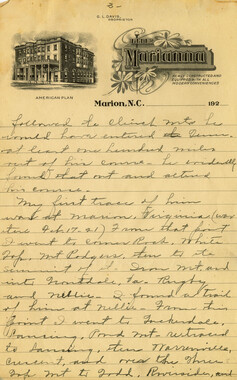 3-
C. L. DAVIS,
PROPRIETOR
The Marianna
NEWLY CONSTRUCTED AND
EQUIPPED WITH ALL
MODERN CONVENIENCES
AMERICAN PLAN
Marion, N.C. 192
followed the Clinch Mts he
would have entered Tenn.
at least one hundred miles
out of his course - he evidently
found that out and altered
his course.
My first trace of him
was at Marion, Virginia
Feb. 17-21) From that point
I went to Comers Rock, White
Top, Mt Rodgers, then to the
summit of Iron Mt and
into Troutdale, Va. Rugby
and Nellie. I found a trail
of him at Nellie. From this
Point I went to
Lansing, Pond Mt Retraced
to Lansing, then Warrenville,
Creston and over the Three
Top Mt to Todd, Riverside, and